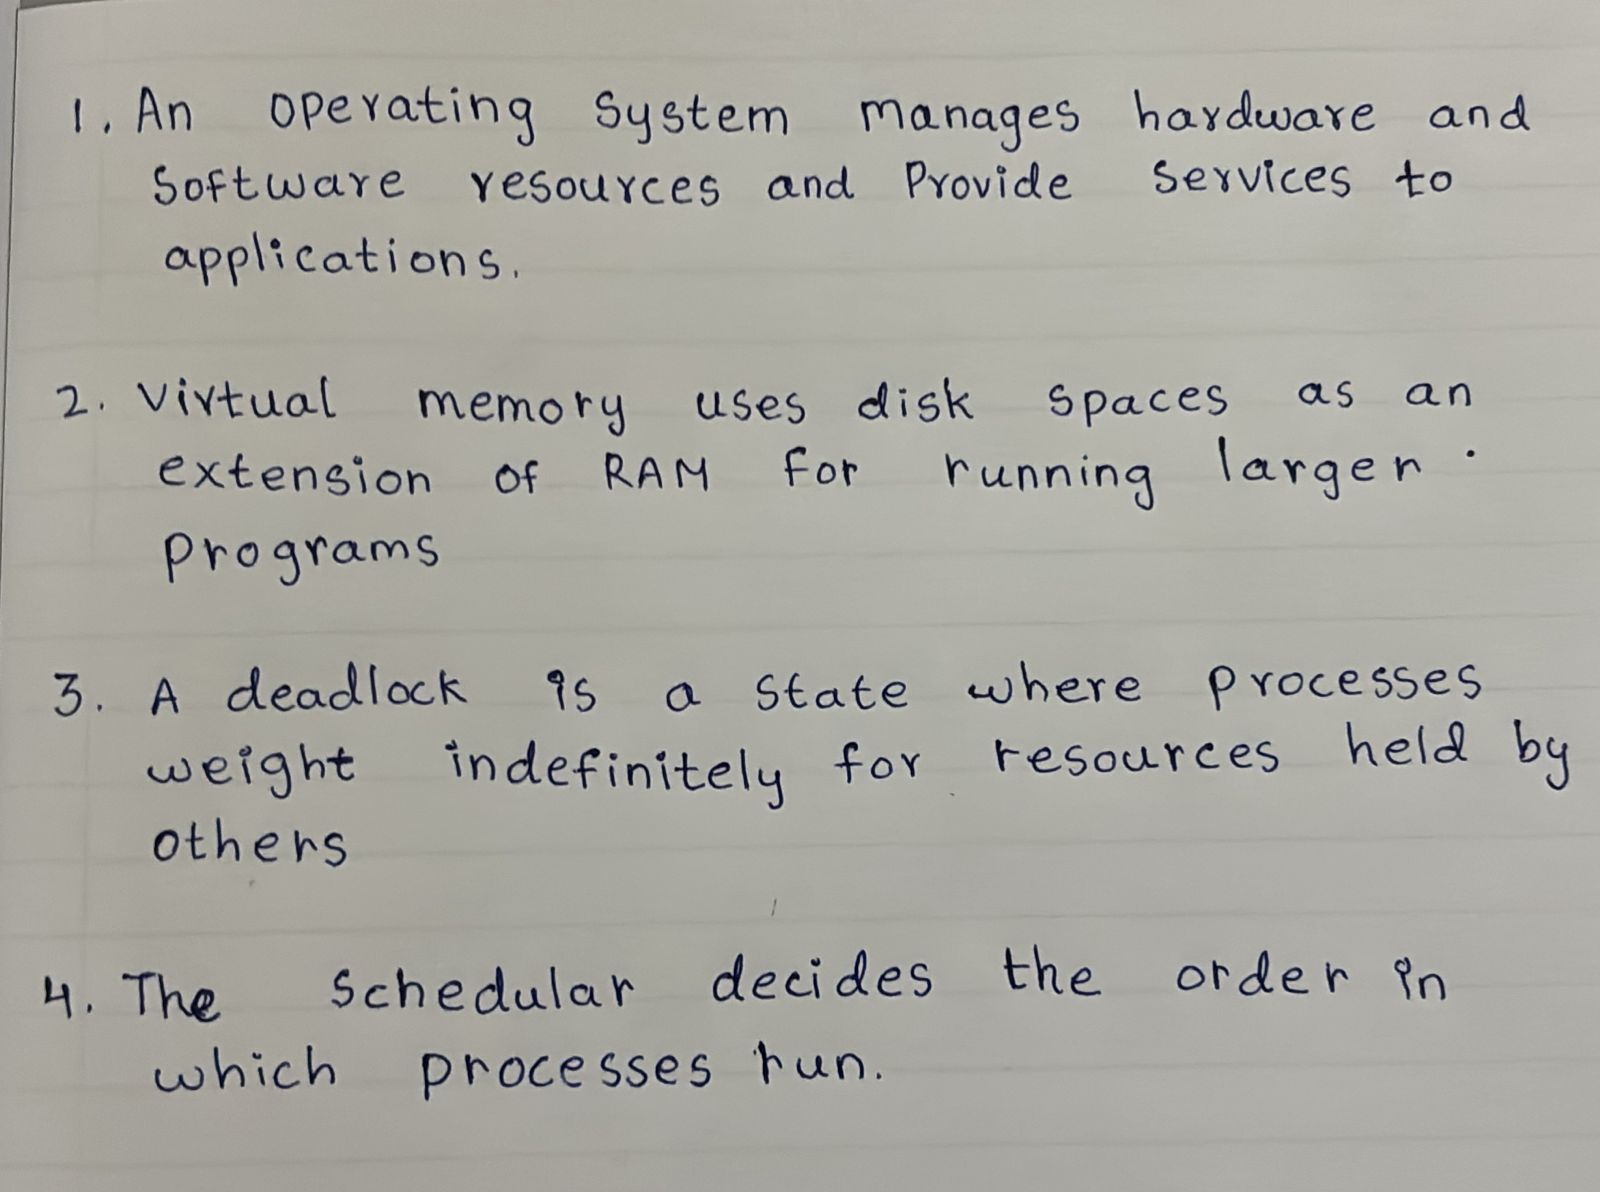 1. An operating system manages hardware and
Software resources and Provide services to
applications.
2. Virtual memory uses disk spaces as an
extension of RAM for running larger
programs
3. A deadlock is a state where processes
weight indefinitely for resources held by
others
4. The Schedular decides the order in
which processes run.